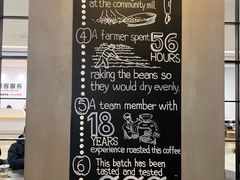 at the community mill.
4
A farmer spent
56
HOURS
raking the beans so
they would dry evenly.
5
A team member with
18
YEARS
experience roasted this coffee
6
This batch has been
tasted and tested
客服务